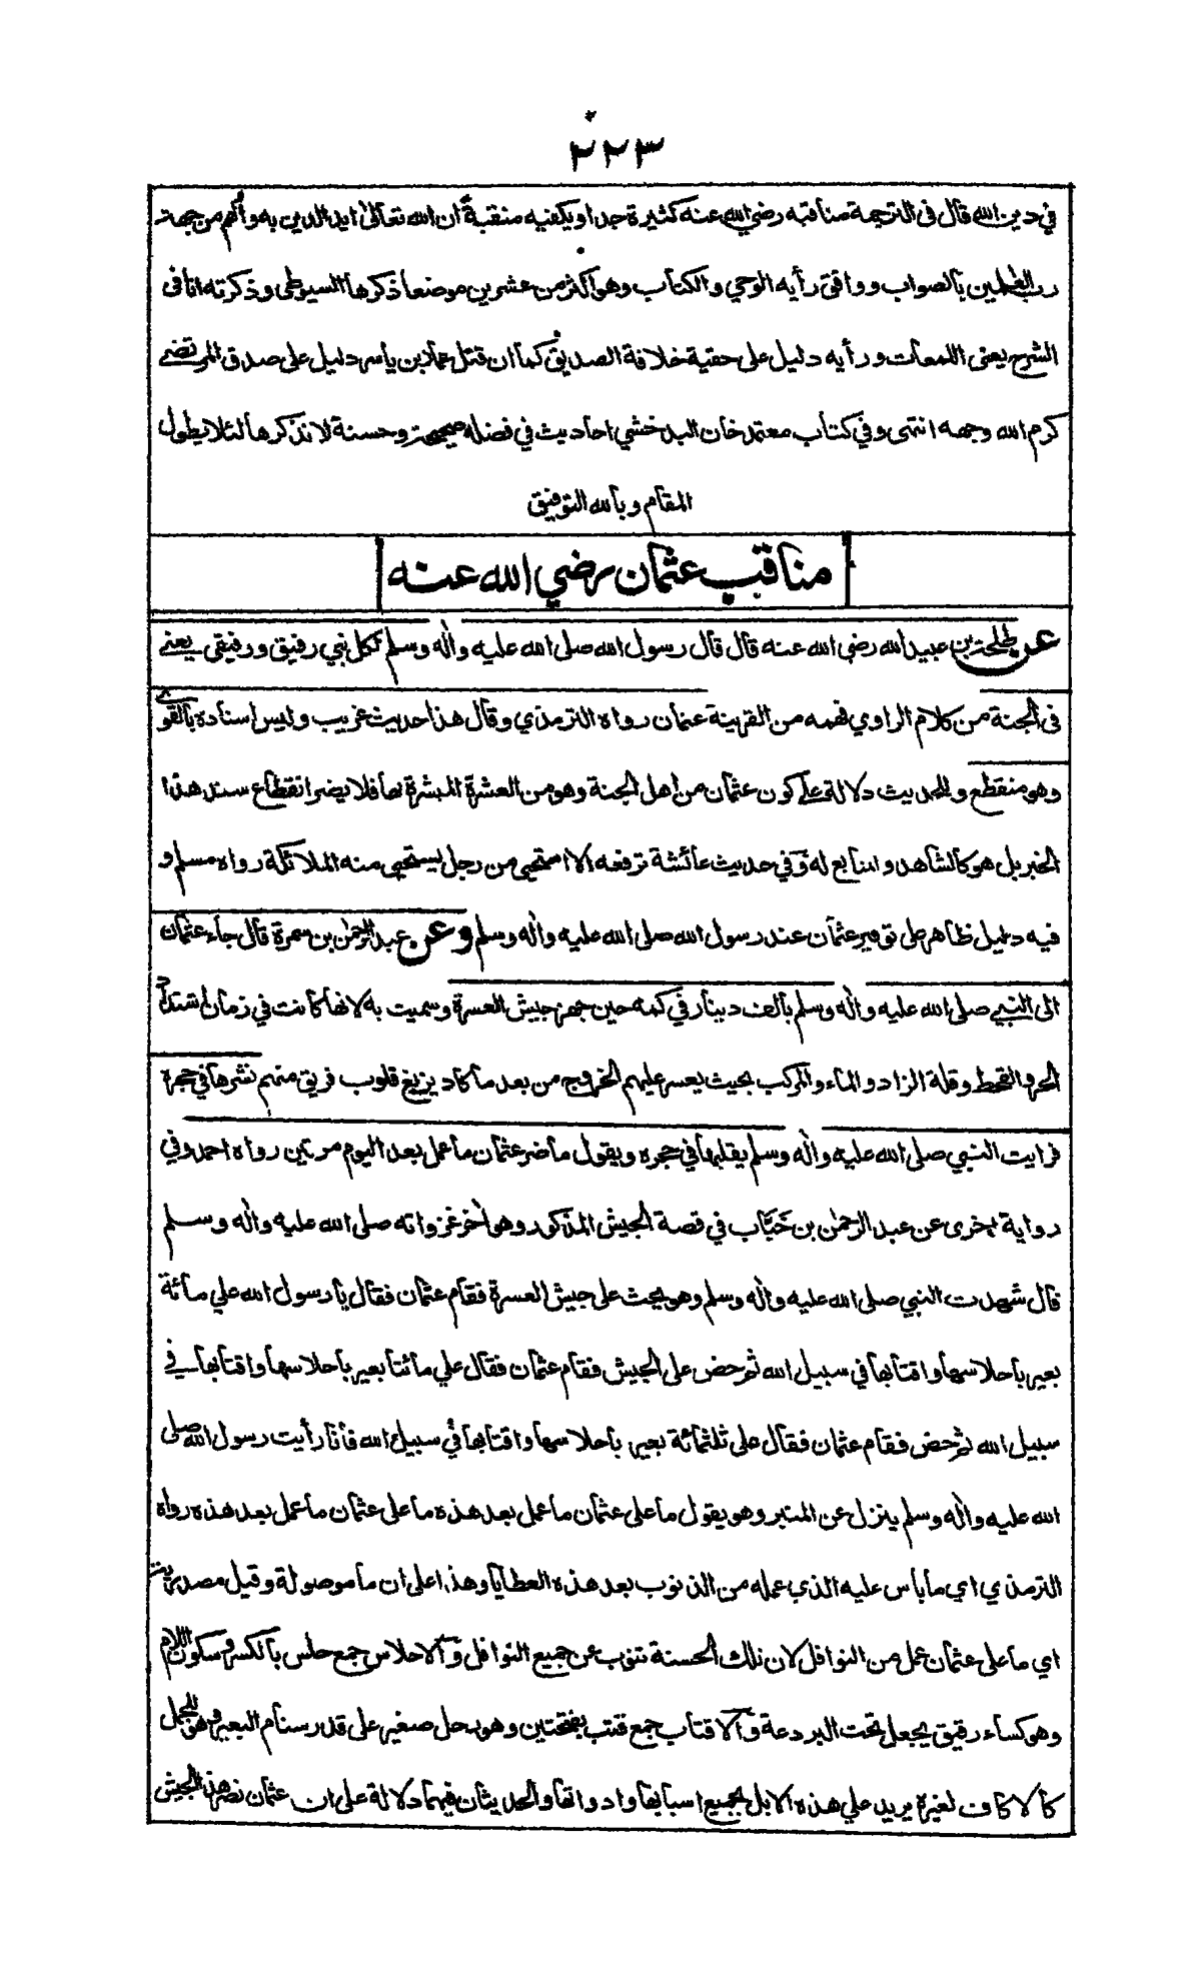 ٢٢٣
في دين الله قال فى الترجمة مناقبه رضي الله عنه كثيرة جدا ويكفيه منقبةً ان الله تعالى ايد الدين به وألهم من جهة
رب العٰلمين بالصواب ووافق رأيه الوحي والكتاب وهو اكثر من عشرين موضعا ذكرها السيوطى وذكرته انا فى
الشرح يعنى اللمعات ورأيه دليل على حقية خلافة الصديق كما ان قتل عمار بن ياسر دليل على صدق المرتضے
كرم الله وجهه انتهى وفي كتاب معتمد خان البدخشي احاديث في فضله صحيحة وحسنة لا نذكرها لئلا يطول
المقام وبالله التوفيق
مناقب عثمان رضي الله عنه
عن طلحة بن عبيد الله رضى الله عنه قال قال رسول الله صلى الله عليه واٰله وسلم لكل نبي رفيق ورفيقى يعنے
فى الجنة من كلام الراوي فهمه من القرينة عثمان رواه الترمذي وقال هذا حديث غريب وليس اسناده بالقوے
وهو منقطع وللحديث دلالة على كون عثمان من اهل الجنة وهو من العشرة المبشرة بها فلا يضر انقطاع سند هذا
الخبر بل هو كالشاهد والتابع له وفي حديث عائشة ترفعه الا استحيى من رجل يستحيى منه الملائكة رواه مسلم و
فيه دليل ظاهر على توقير عثمان عند رسول الله صلى الله عليه واٰله وسلم وعن عبد الرحمٰن بن سمرة قال جاء عثمان
الى النبي صلى الله عليه واٰله وسلم بالف دينار في كمه حين جهز جيش العسرة وسميت به لانها كانت في زمان اشتداد
الحر والقحط وقلة الزاد والماء والمركب بحيث يعسر عليهم الخروج من بعد ما كاد يزيغ قلوب فريق منهم نثرها في حجره
فرايت النبي صلى الله عليه واٰله وسلم يقلبها في حجره ويقول ما ضر عثمان ما عمل بعد اليوم مرتين رواه احمد وفي
رواية اخرى عن عبد الرحمٰن بن خَبَّاب في قصة الجيش المذكور وهو اٰخر غزواته صلى الله عليه واٰله وسلم
قال شهدت النبي صلى الله عليه واٰله وسلم وهو يحث على جيش العسرة فقام عثمان فقال يا رسول الله علي مائة
بعير باحلاسها واقتابها في سبيل الله ثم حض على الجيش فقام عثمان فقال علي مائتا بعير باحلاسها واقتابها في
سبيل الله ثم حض فقام عثمان فقال على ثلثمائة بعير باحلاسها واقتابها في سبيل الله فانا رأيت رسول الله صلى
الله عليه واٰله وسلم ينزل عن المنبر وهو يقول ما على عثمان ما عمل بعد هذه ما على عثمان ما عمل بعد هذه رواه
الترمذي اي ما باس عليه الذي عمله من الذنوب بعد هذه العطايا وهذا على ان ما موصولة وقيل مصدرية
اي ما على عثمان عمل من النوافل لان تلك الحسنة تنوب عن جميع النوافل والاحلاس جمع حلس بالكسر وسكون اللام
وهو كساء رقيق يجعل تحت البردعة والاقتاب جمع قتب بفتحتين وهو رحل صغير على قدر سنام البعير وهو للجمل
كالاكاف لغيره يريد علي هذه الابل بجميع اسبابها وادواتها والحديثان فيهما دلالة على ان عثمان نصر هذا الجيش